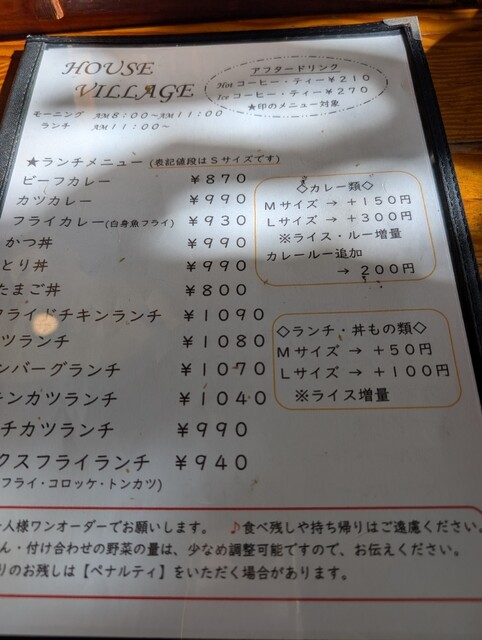 HOUSE
VILLAGE
アフタードリンク
Hot コーヒー・ティー¥210
Ice コーヒー・ティー¥270
★印のメニュー対象
モーニング AM8:00~AM11:00
ランチ AM11:00~
★ランチメニュー (表記値段はSサイズです)
ビーフカレー ¥870
カツカレー ¥990
フライカレー(白身魚フライ) ¥930
かつ丼 ¥990
とり丼 ¥990
たまご丼 ¥800
フライドチキンランチ ¥1090
ツランチ ¥1080
ンバーグランチ ¥1070
キンカツランチ ¥1040
チカツランチ ¥990
クスフライランチ ¥940
フライ・コロッケ・トンカツ)
◇カレー類◇
Mサイズ → +150円
Lサイズ → +300円
※ライス・ルー増量
カレールー追加
→ 200円
◇ランチ・丼もの類◇
Mサイズ → +50円
Lサイズ → +100円
※ライス増量
人様ワンオーダーでお願いします。 ♪食べ残しや持ち帰りはご遠慮ください。
ん・付け合わせの野菜の量は、少なめ調整可能ですので、お伝えください。
りのお残しは【ペナルティ】をいただく場合があります。